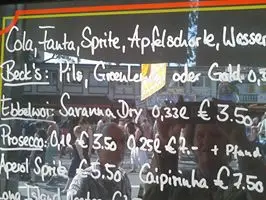 Cola, Fanta, Sprite, Apfelschorle, Wasser
Beck's: Pils, Green Lemon oder Gold 0,3
Ebbelwoi Savanna Dry 0,33l € 3.50
Prosecco: 0,1l € 3.50 0,25l € 7.- + Pfand
Aperol Sprit € 5.50 Caipirinha € 7.50
Long Island